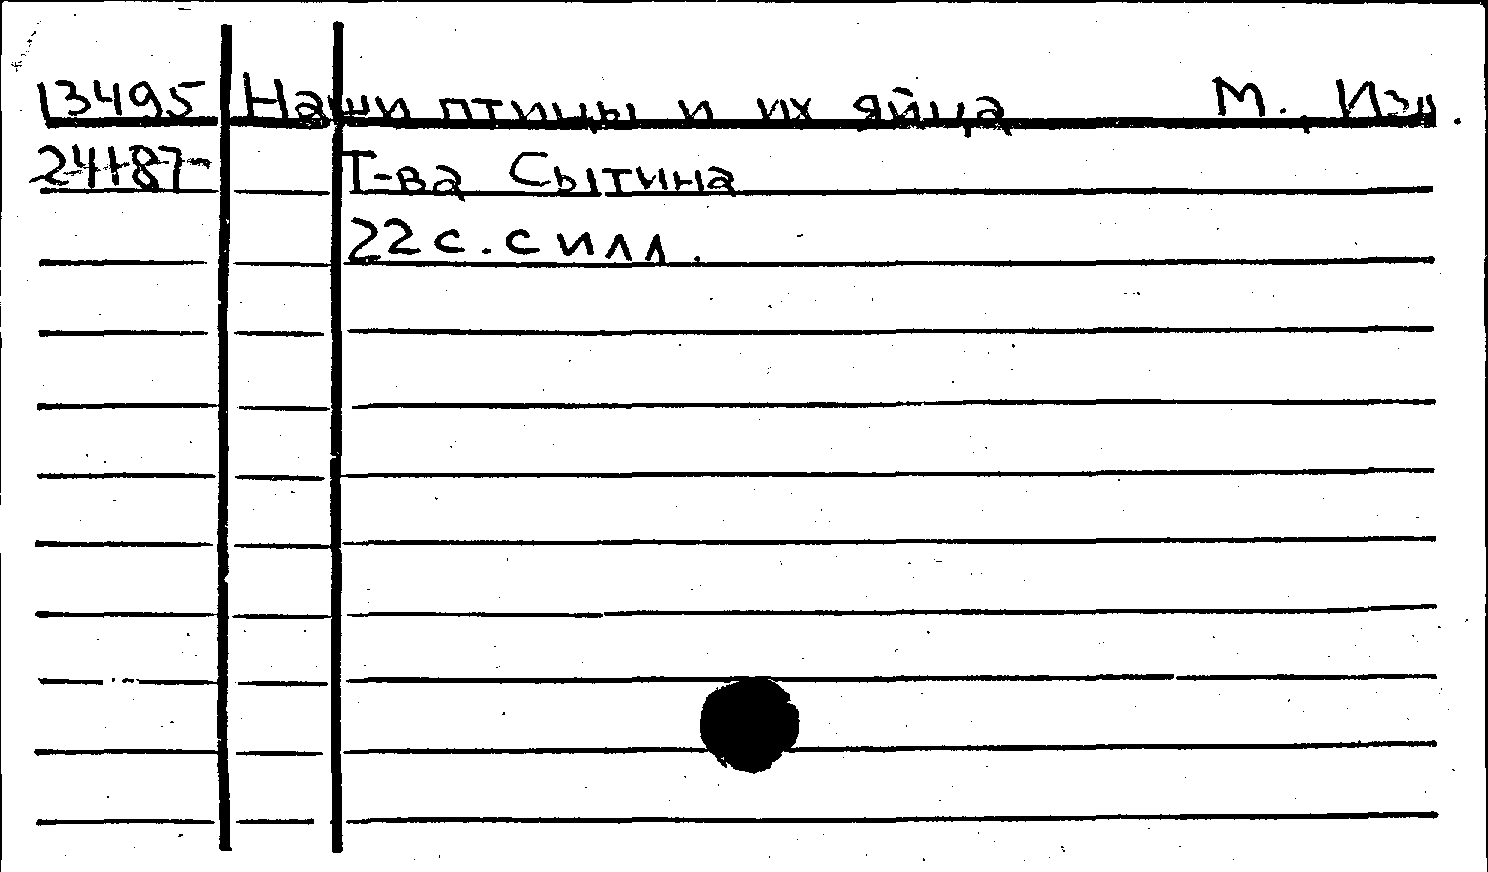 13495 Наши птицы и их яйца М., Изд.
24187 Т-ва Сытина
22 с. с илл.